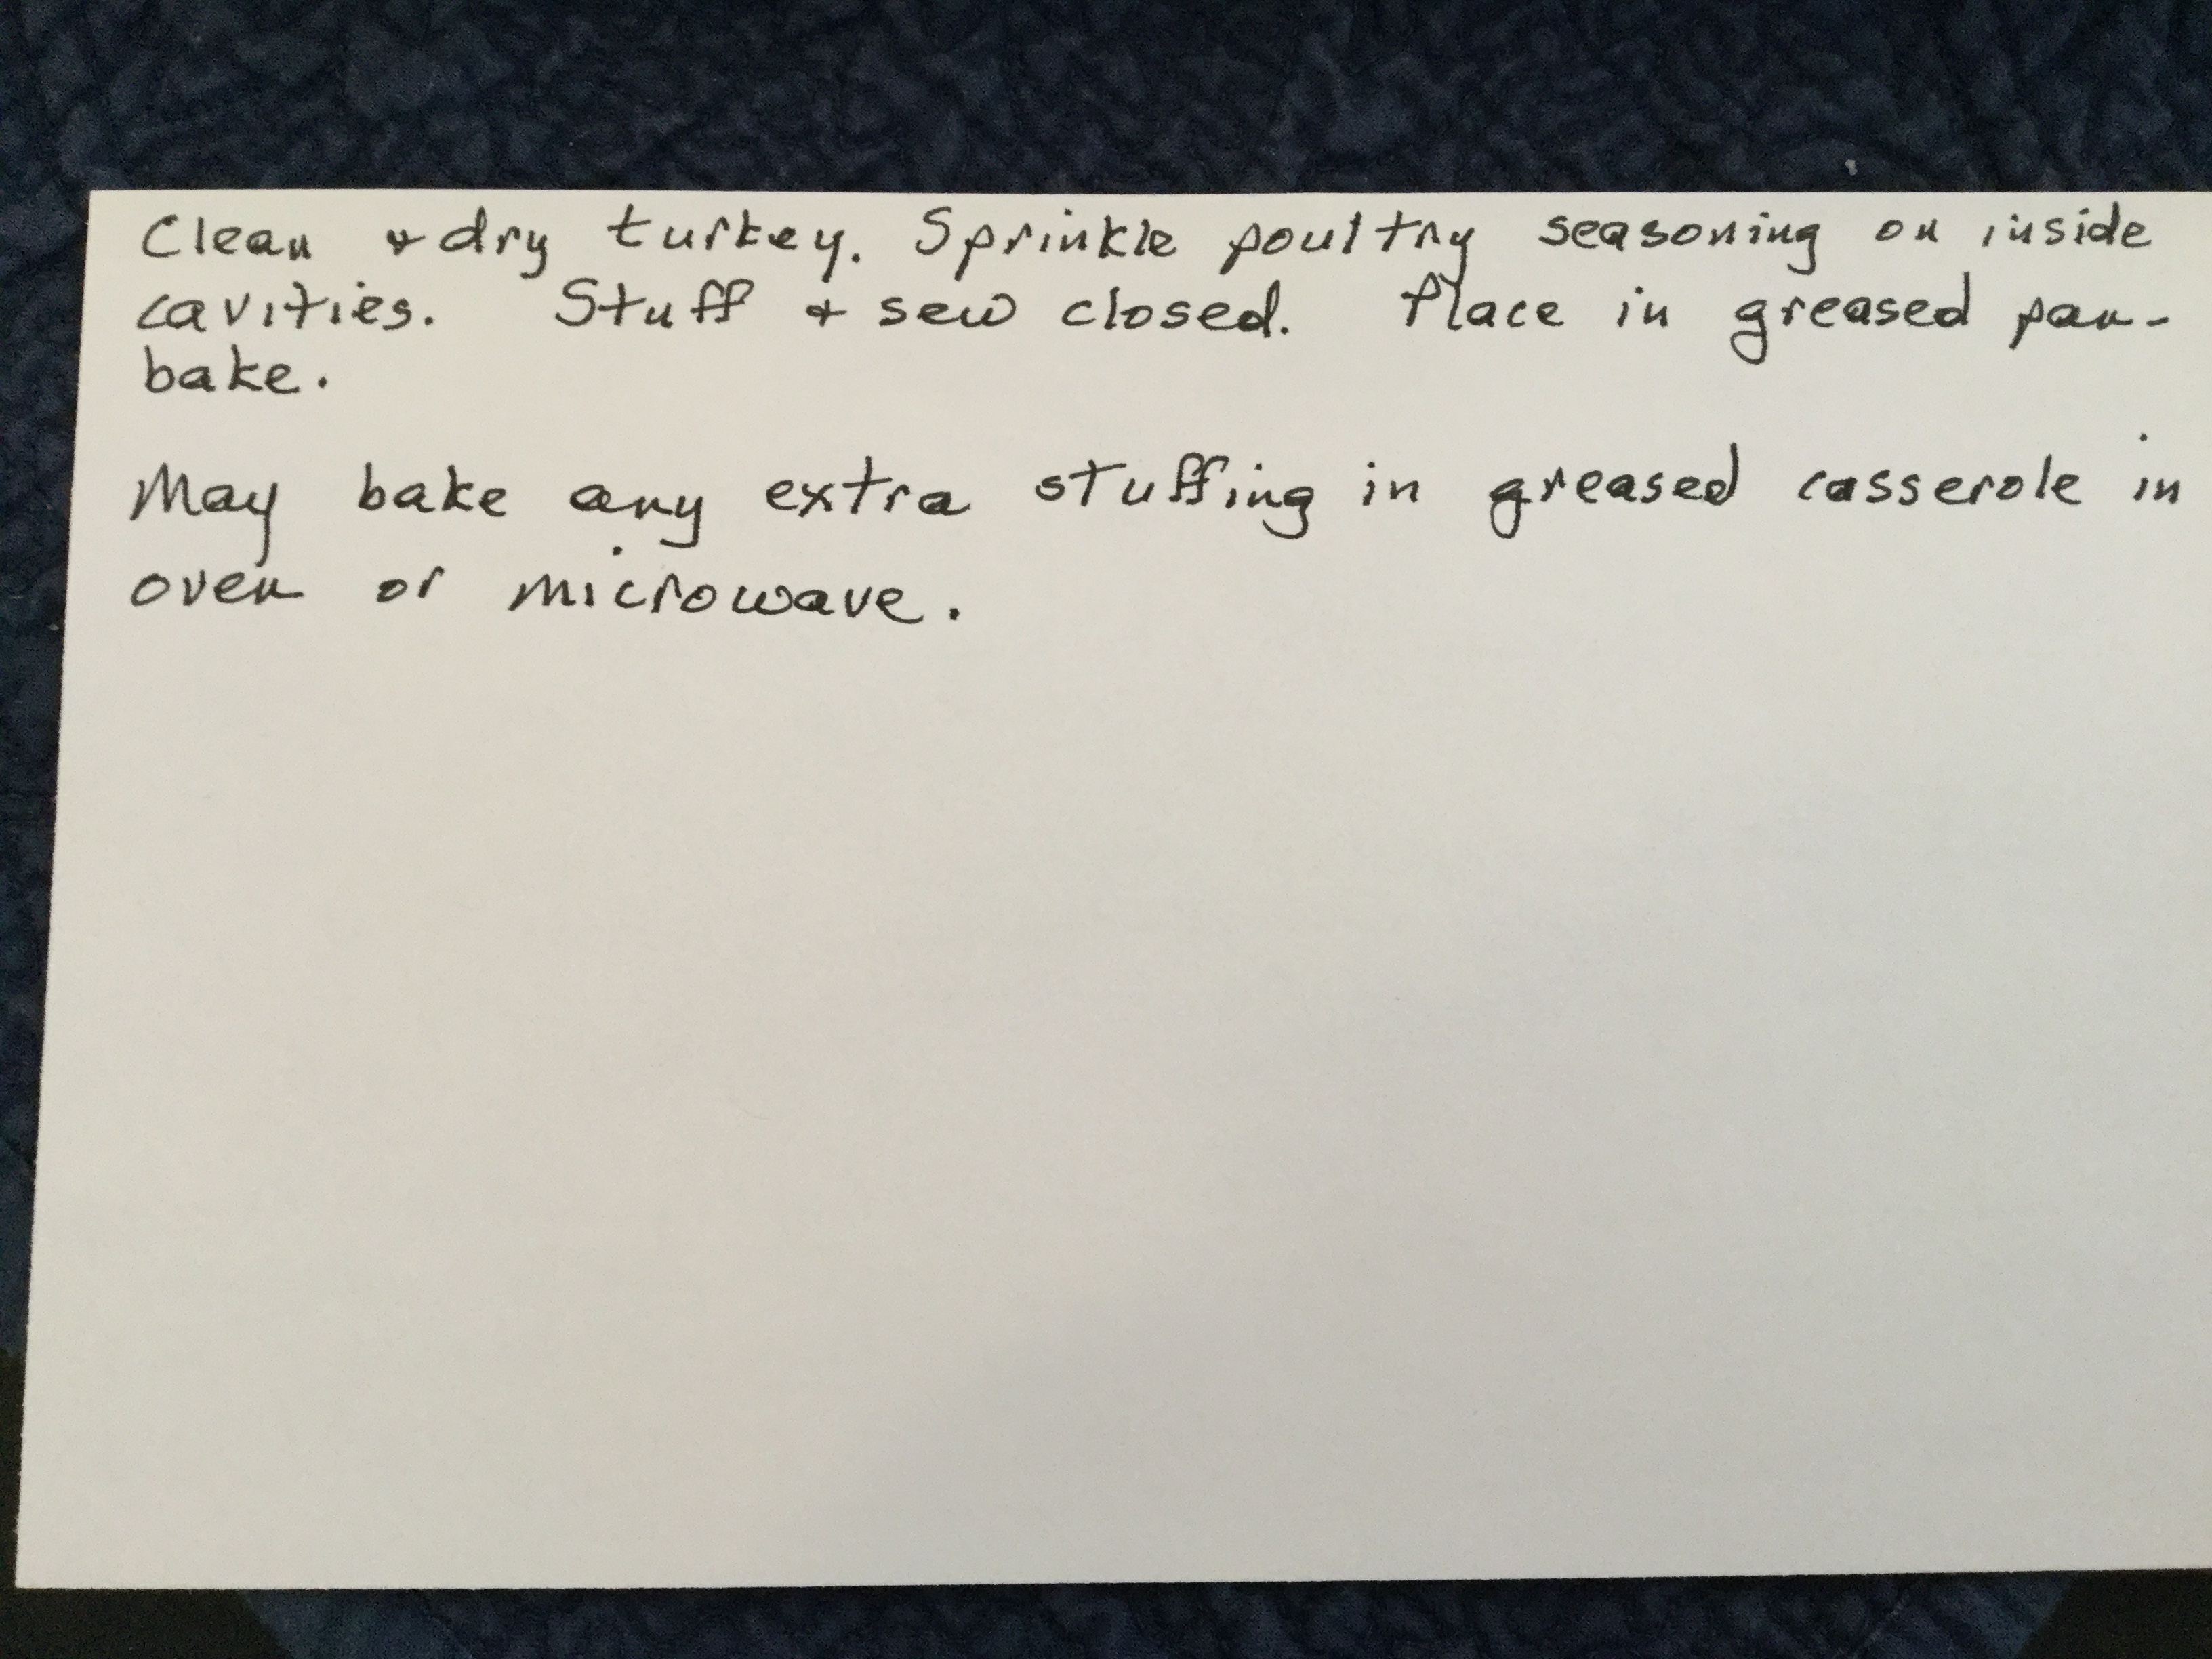 Clean & dry turkey. Sprinkle poultry seasoning on inside
cavities. Stuff & sew closed. Place in greased pan-
bake.
May bake any extra stuffing in greased casserole in
oven or microwave.